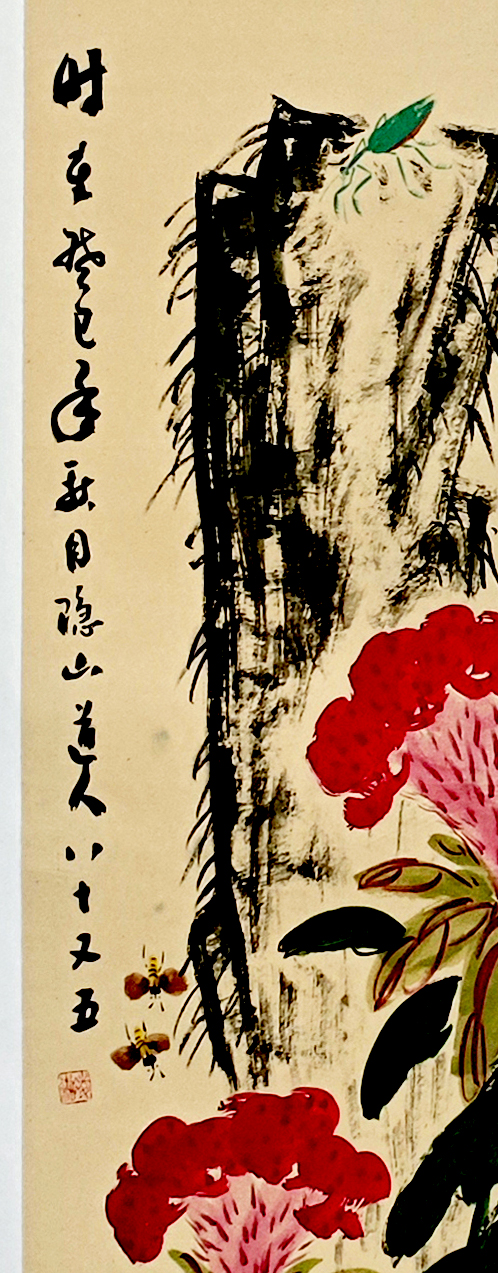 时在癸巳年秋月隐山道人八十又五